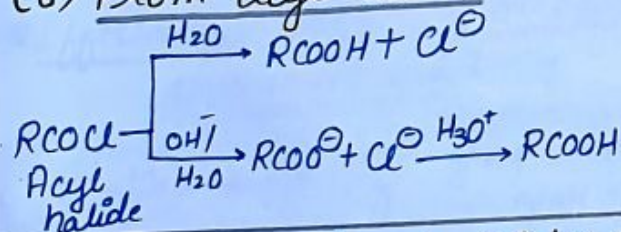 H2O → RCOOH + Cl⊖
RCOCl
OH⁻/H2O → RCOO⊖ + Cl⊖ H3O⁺ → RCOOH
Acyl
halide